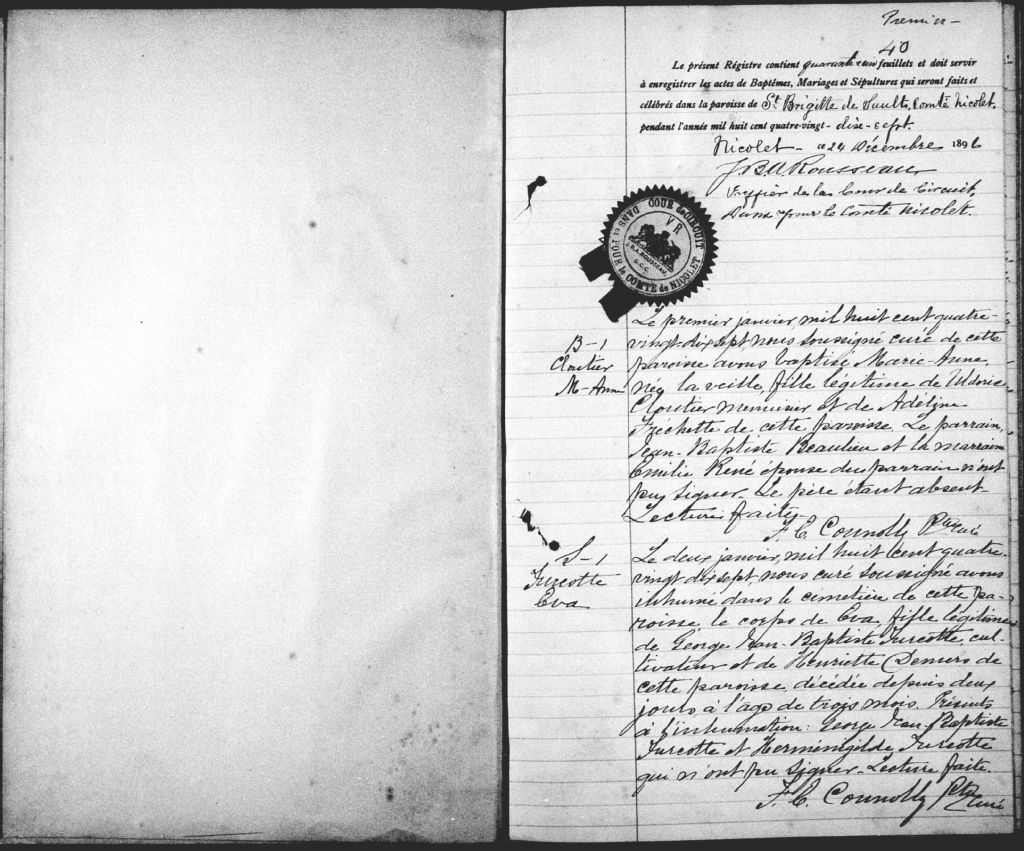 Premier -
40
Le présent Régistre contient quarante feuillets et doit servir
à enregistrer les actes de Baptêmes, Mariages et Sépultures qui seront faits et
célébrés dans la paroisse de St. Brigitte de Saults, Comté Nicolet,
pendant l'année mil huit cent quatre-vingt-dix-sept.
Nicolet - ce 24 Décembre 1896
J B A Rousseau
Greffier de la Cour de Circuit,
Dans & pour le Comté Nicolet.
COUR de CIRCUIT
DANS et POUR le COMTÉ de NICOLET
VR
J. B. A. ROUSSEAU
G.C.C.
B-1
Cloutier
M-Anne
Le premier janvier, mil huit cent quatre-
vingt-dix sept, nous soussigné curé de cette
paroisse avons baptisé Marie-Anne,
née la veille, fille légitime de
Cloutier menuisier et de Adéline
Fréchette de cette paroisse. Le parrain,
Jean-Baptiste Beaulieu et la marraine
Emilie René épouse du parrain n'ont
pu signer. Le père étant absent.
Lecture faite.
F. C. Connolly Ptre Curé
S-1
Turcotte
Eva
Le deux janvier, mil huit cent quatre-
vingt dix sept, nous curé soussigné avons
inhumé dans le cimetière de cette pa-
roisse le corps de Eva, fille légitime
de George Jean-Baptiste Turcotte, cul-
tivateur et de Henriette Demers de
cette paroisse, décédée depuis deux
jours à l'âge de trois mois. Présents
à l'inhumation: George Jean-Baptiste
Turcotte et Herménégilde Turcotte
qui n'ont pu signer. Lecture faite.
F. C. Connolly Ptre Curé